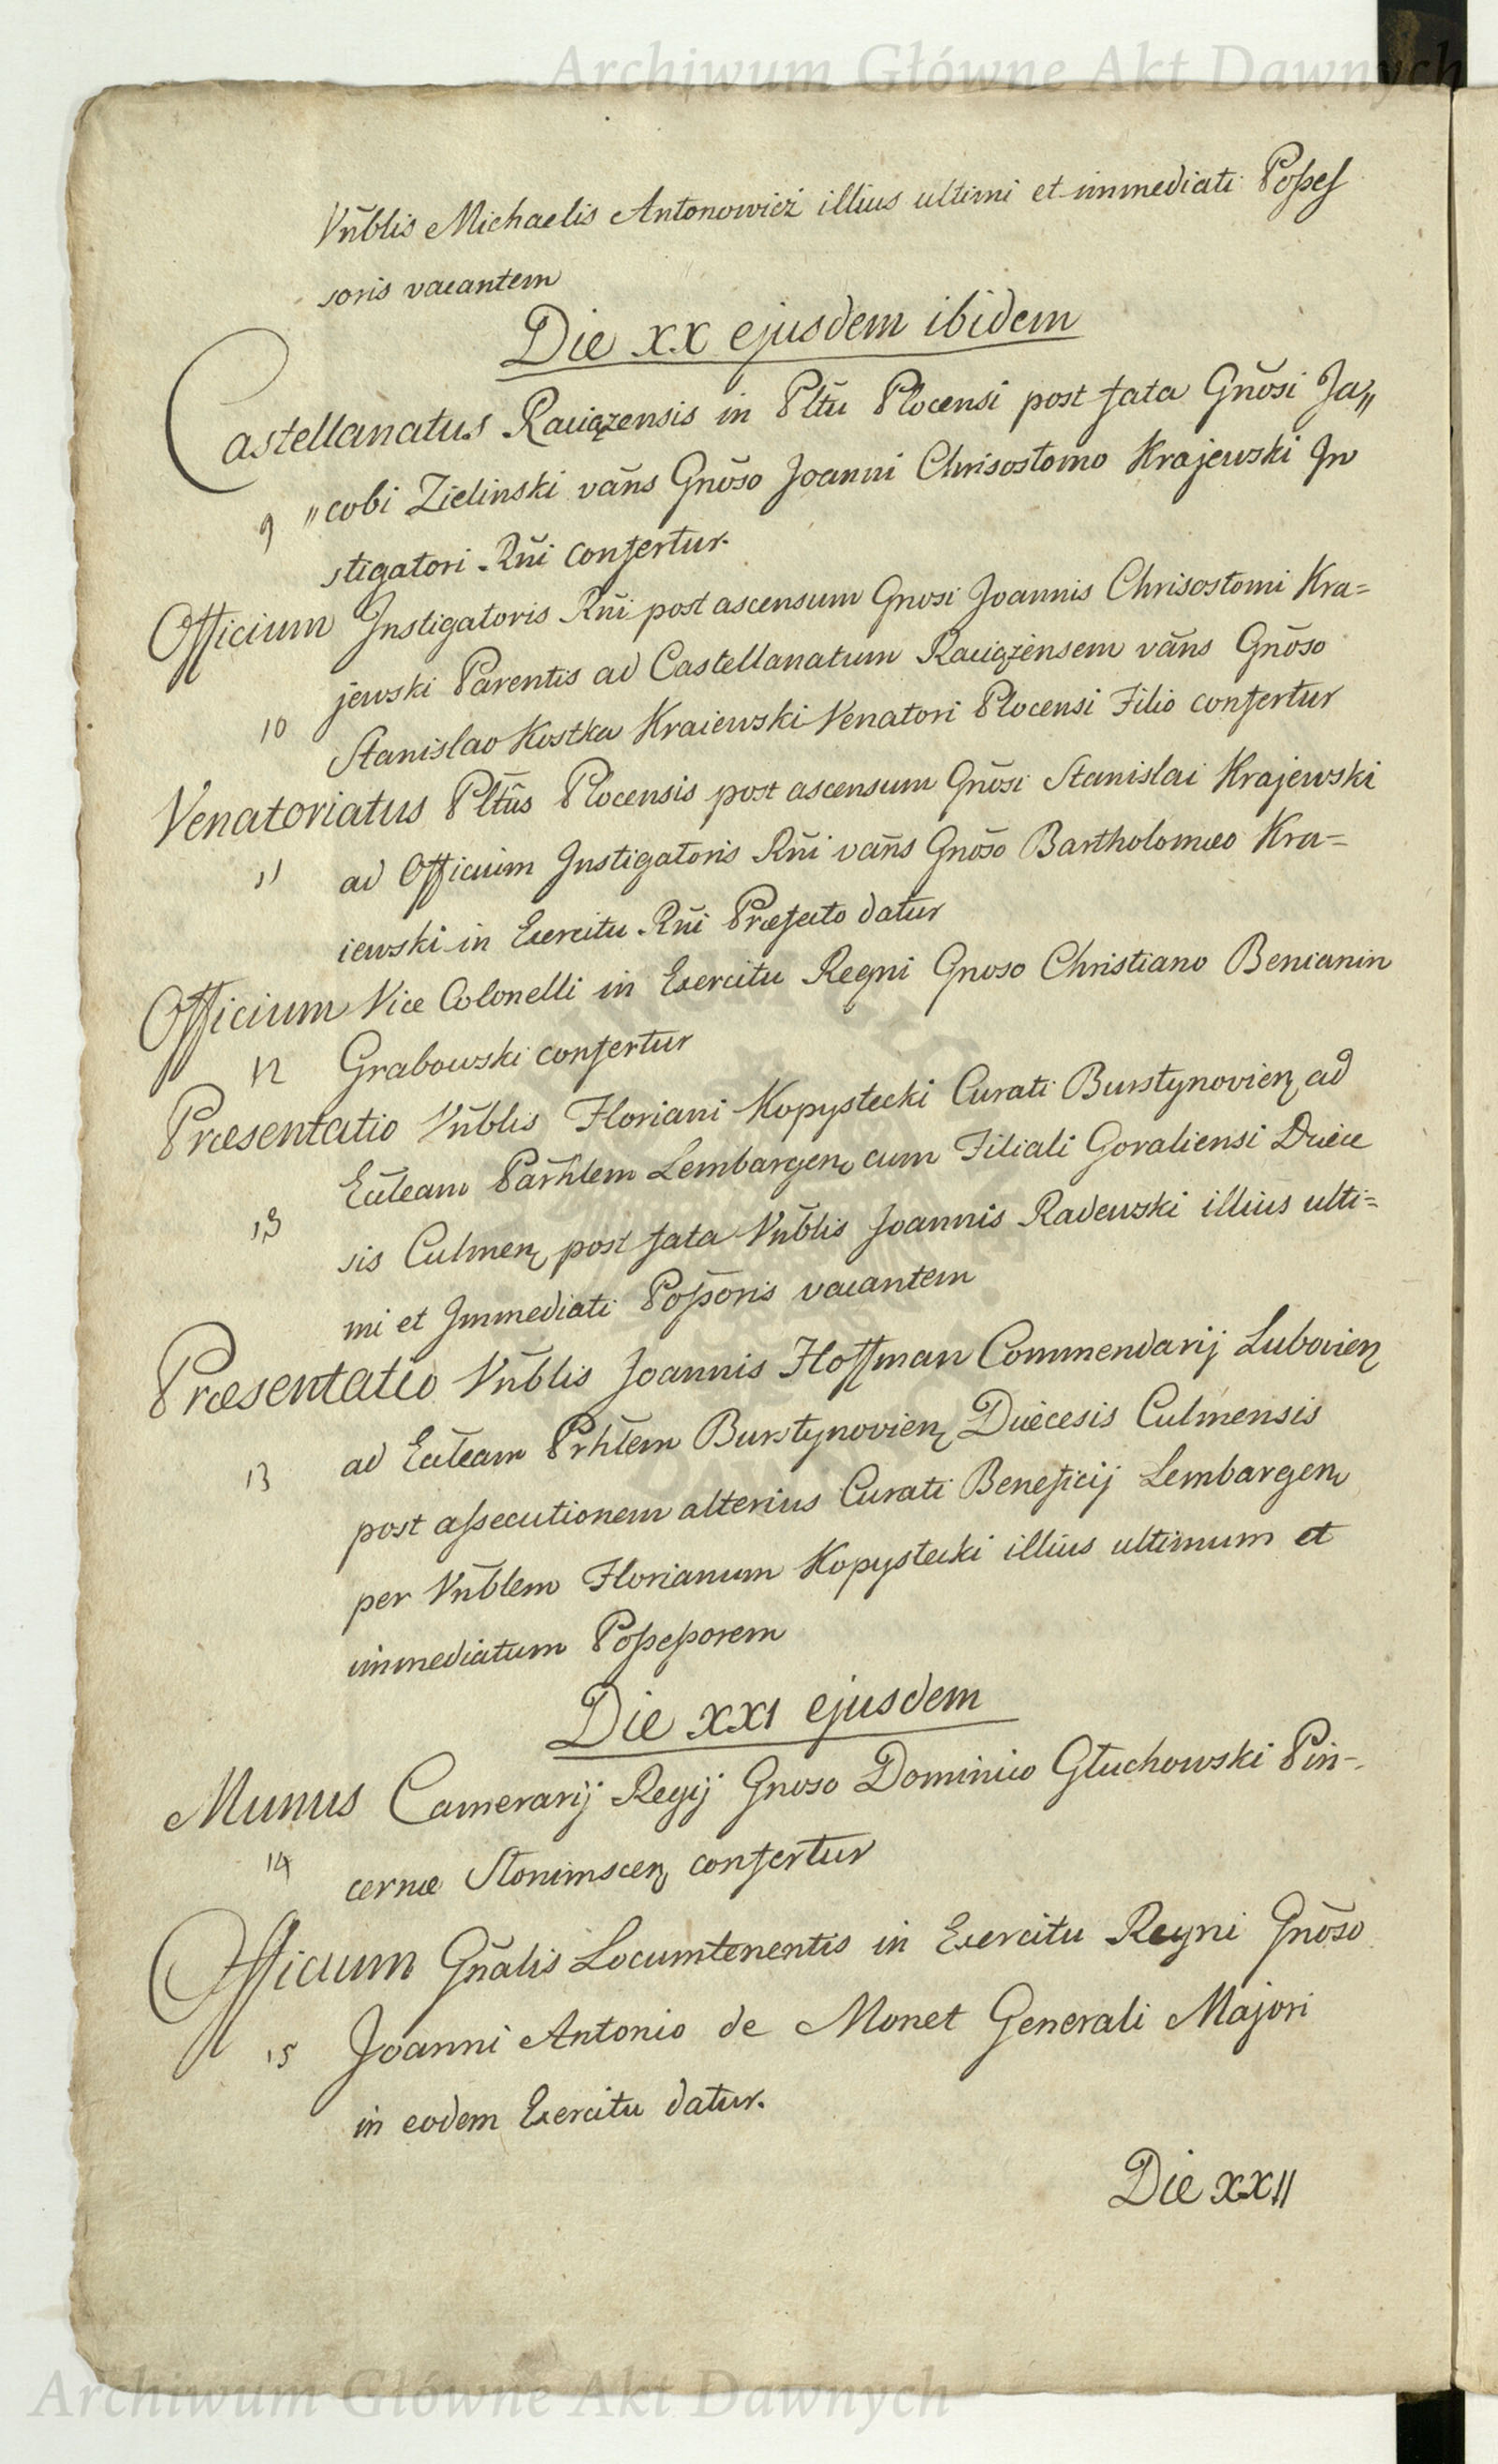 Archiwum Główne Akt Dawnych
Vñblis Michaelis Antonowicz illius ultimi et immediati Poßes
soris vacantem
Die XX ejusdem ibidem
Castellanatus Raciązensis in Pltũ Plocensi post fata Gnõsi Ja„
9 „cobi Zielinski vãns Gnõso Joanni Chrisostomo Krajewski In
stigatori Rñi confertur.
Officium Instigatoris Rñi post ascensum Gnosi Joannis Chrisostomi Kra=
jewski Parentis ad Castellanatum Raciążensem vãns Gnõso
10 Stanislao Kostka Kraiewski Venatori Plocensi Filio confertur
Venatoriatus Pltũs Plocensis post ascensum Gnõsi Stanislai Krajewski
11 ad Officium Instigatoris Rñi vãns Gnõso Bartholomæo Kra=
iewski in Exercitu Rñi Præfecto datur
Officium Vice Colonelli in Exercitu Regni Gnoso Christiano Beniamin
12 Grabowski confertur
Præsentatio Vñblis Floriani Kopystecki Curati Burstynovien ad
Ecĩleam Parhlem Lembargen cum Filiali Goraliensi Diœce
13 sis Culmen post fata Vñblis Joannis Radewski illius ulti=
mi et Immediati Poßoris vacantem
Præsentatio Vñblis Joannis Hoffman Commendarij Lubovien
ad Eccleam Prhlem Burstynovien Diecesis Culmensis
13 post aßecutionem alterius Curati Beneficij Lembargen
per Vñblem Florianum Kopystecki illius ultimum et
immediatum Poßeßorem
Die XXI ejusdem
Munus Camerarij Regij Gnoso Dominico Głuchowski Pin-
14 cernæ Słonimscen confertur
Officium Gñalis Locumtenentis in Exercitu Regni Gnõso
15 Joanni Antonio de Monet Generali Majori
in eodem Exercitu datur.
Die XXII
Archiwum Główne Akt Dawnych